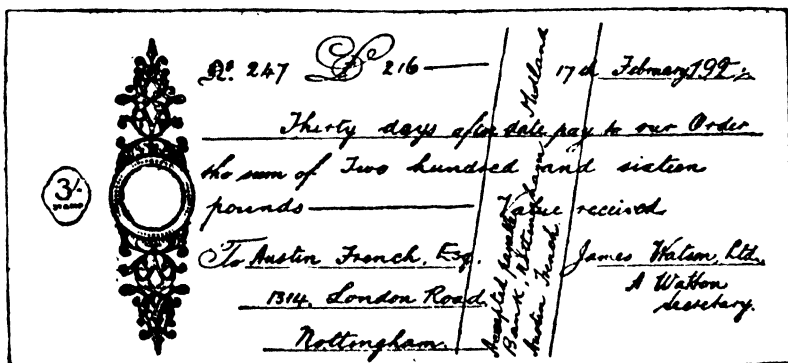 No. 247 £ 216 — 17th February 192-
Thirty days after date pay to our Order
the sum of Two hundred and sixteen
pounds — Value received
To Austin French, Esq. James Watson, Ltd.
1314, London Road A Watson
Nottingham. Secretary.
3/-
Accepted payable Midland
Bank, Nottingham
Austin French